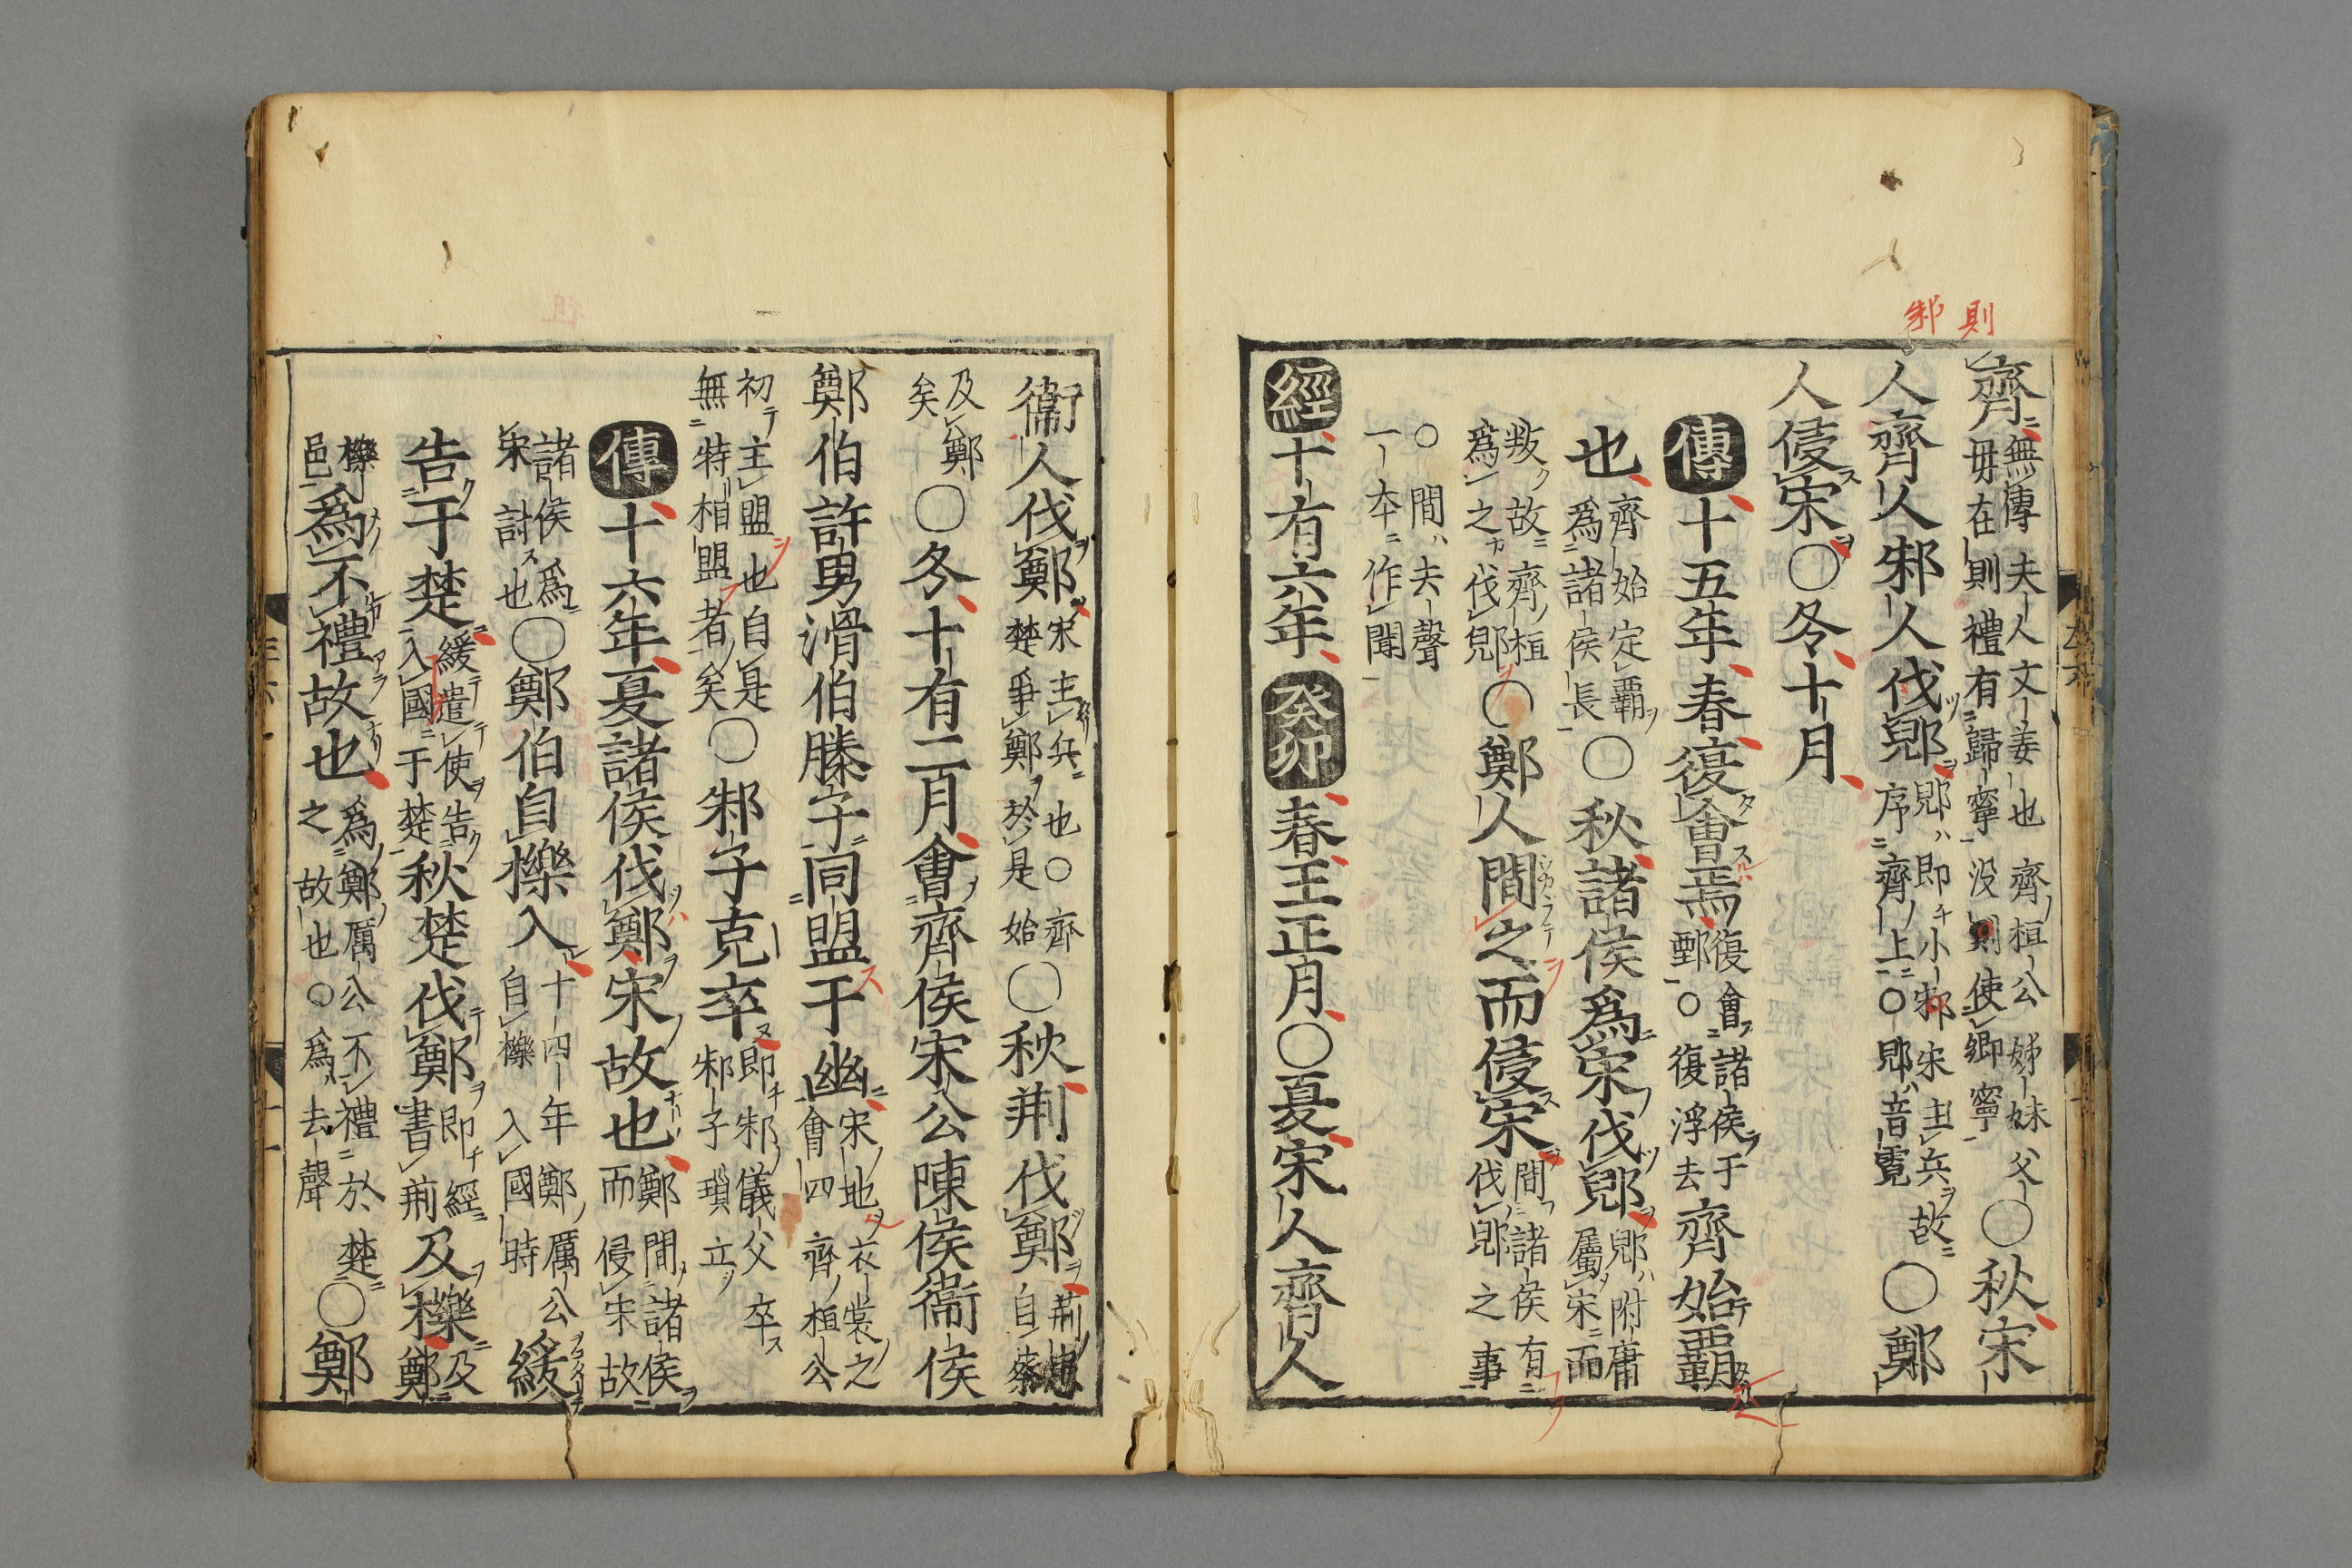 則
邾
齊無傳夫人文姜也齊桓公姊妹父
母在則禮有歸寧没則使卿寧〇秋宋
人齊人邾人伐郳郳ハ即チ小邾宋主兵故
序齊上〇郳ハ音霓〇鄭
人侵宋〇冬十月
傳十五年春復會焉復會諸侯于
鄄〇復浮去齊始覇
也齊始定覇
爲諸侯長〇秋諸侯爲宋伐郳郳ハ附庸
屬宋而
叛ク故齊桓
爲之伐郳〇鄭人間之而侵宋間諸侯有
伐郳之事
〇間ハ去聲
一本作聞
經十有六年癸卯春王正月〇夏宋人齊人
衞人伐鄭宋主兵也〇齊
楚爭鄭於是始〇秋荆伐鄭荆
自蔡
及鄭
矣〇冬十有二月會齊侯宋公陳侯衞侯
鄭伯許男滑伯滕子同盟于幽宋地衣裳之
會四齊桓公
初主盟也自是
無特相盟者矣〇邾子克卒即邾儀父卒
邾子瑣立
傳十六年夏諸侯伐鄭宋故也鄭間諸侯
而侵宋故
諸侯爲
宋討也〇鄭伯自櫟入十四年鄭厲公
自櫟入國時緩
告于楚緩遣使告
入國于楚秋楚伐鄭即經
書荆及櫟及
鄭
櫟
邑爲不禮故也爲鄭厲公不禮於楚
之故也〇爲ハ去聲〇鄭